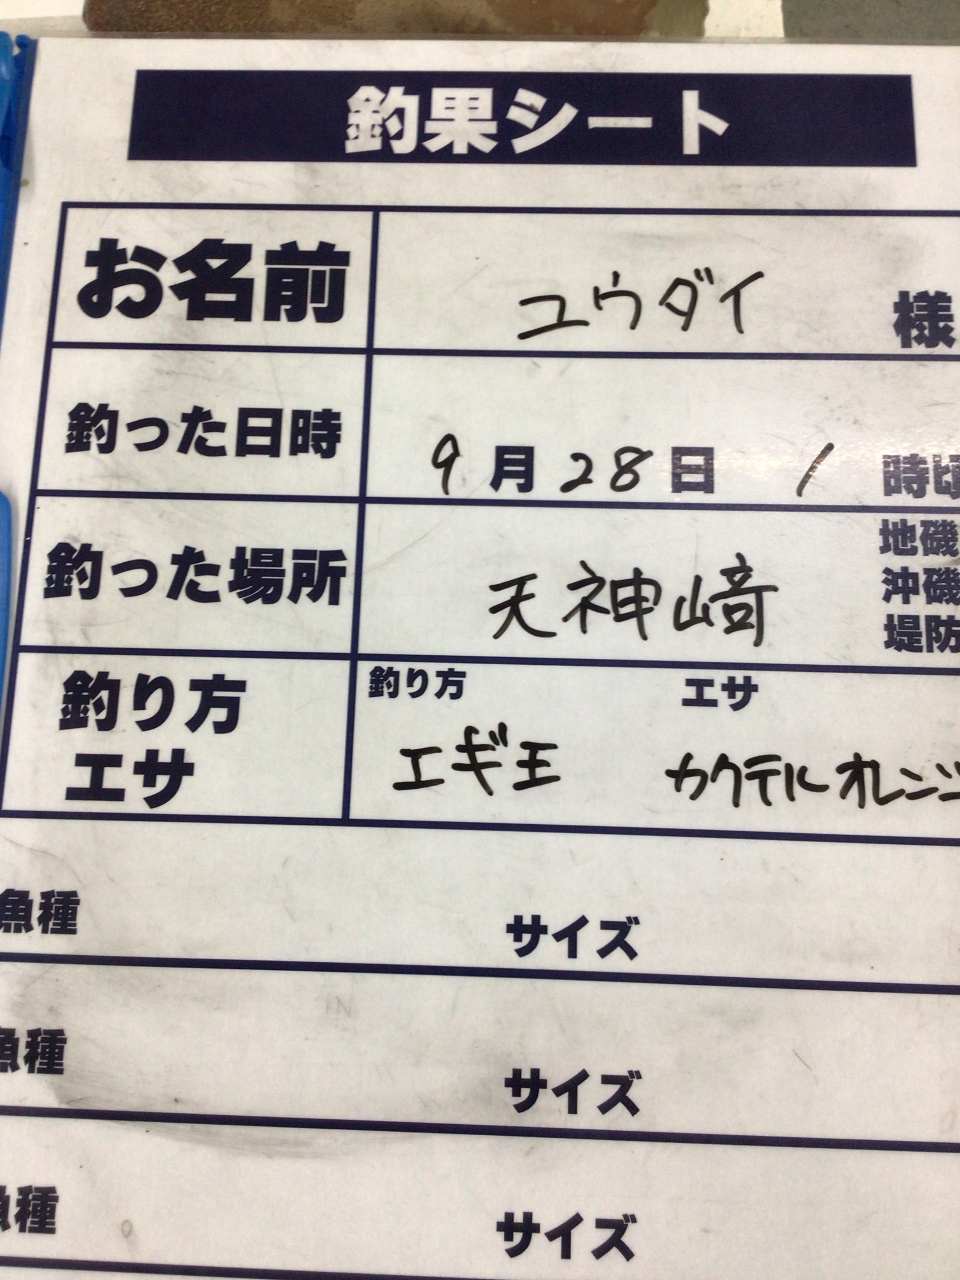 釣果シート
お名前 ユウダイ 様
釣った日時 9月28日 1時頃
釣った場所 天神﨑 地磯
沖磯
堤防
釣り方 エサ
釣り方 エギ王 エサ カクテルオレンジ
魚種 サイズ
魚種 サイズ
魚種 サイズ